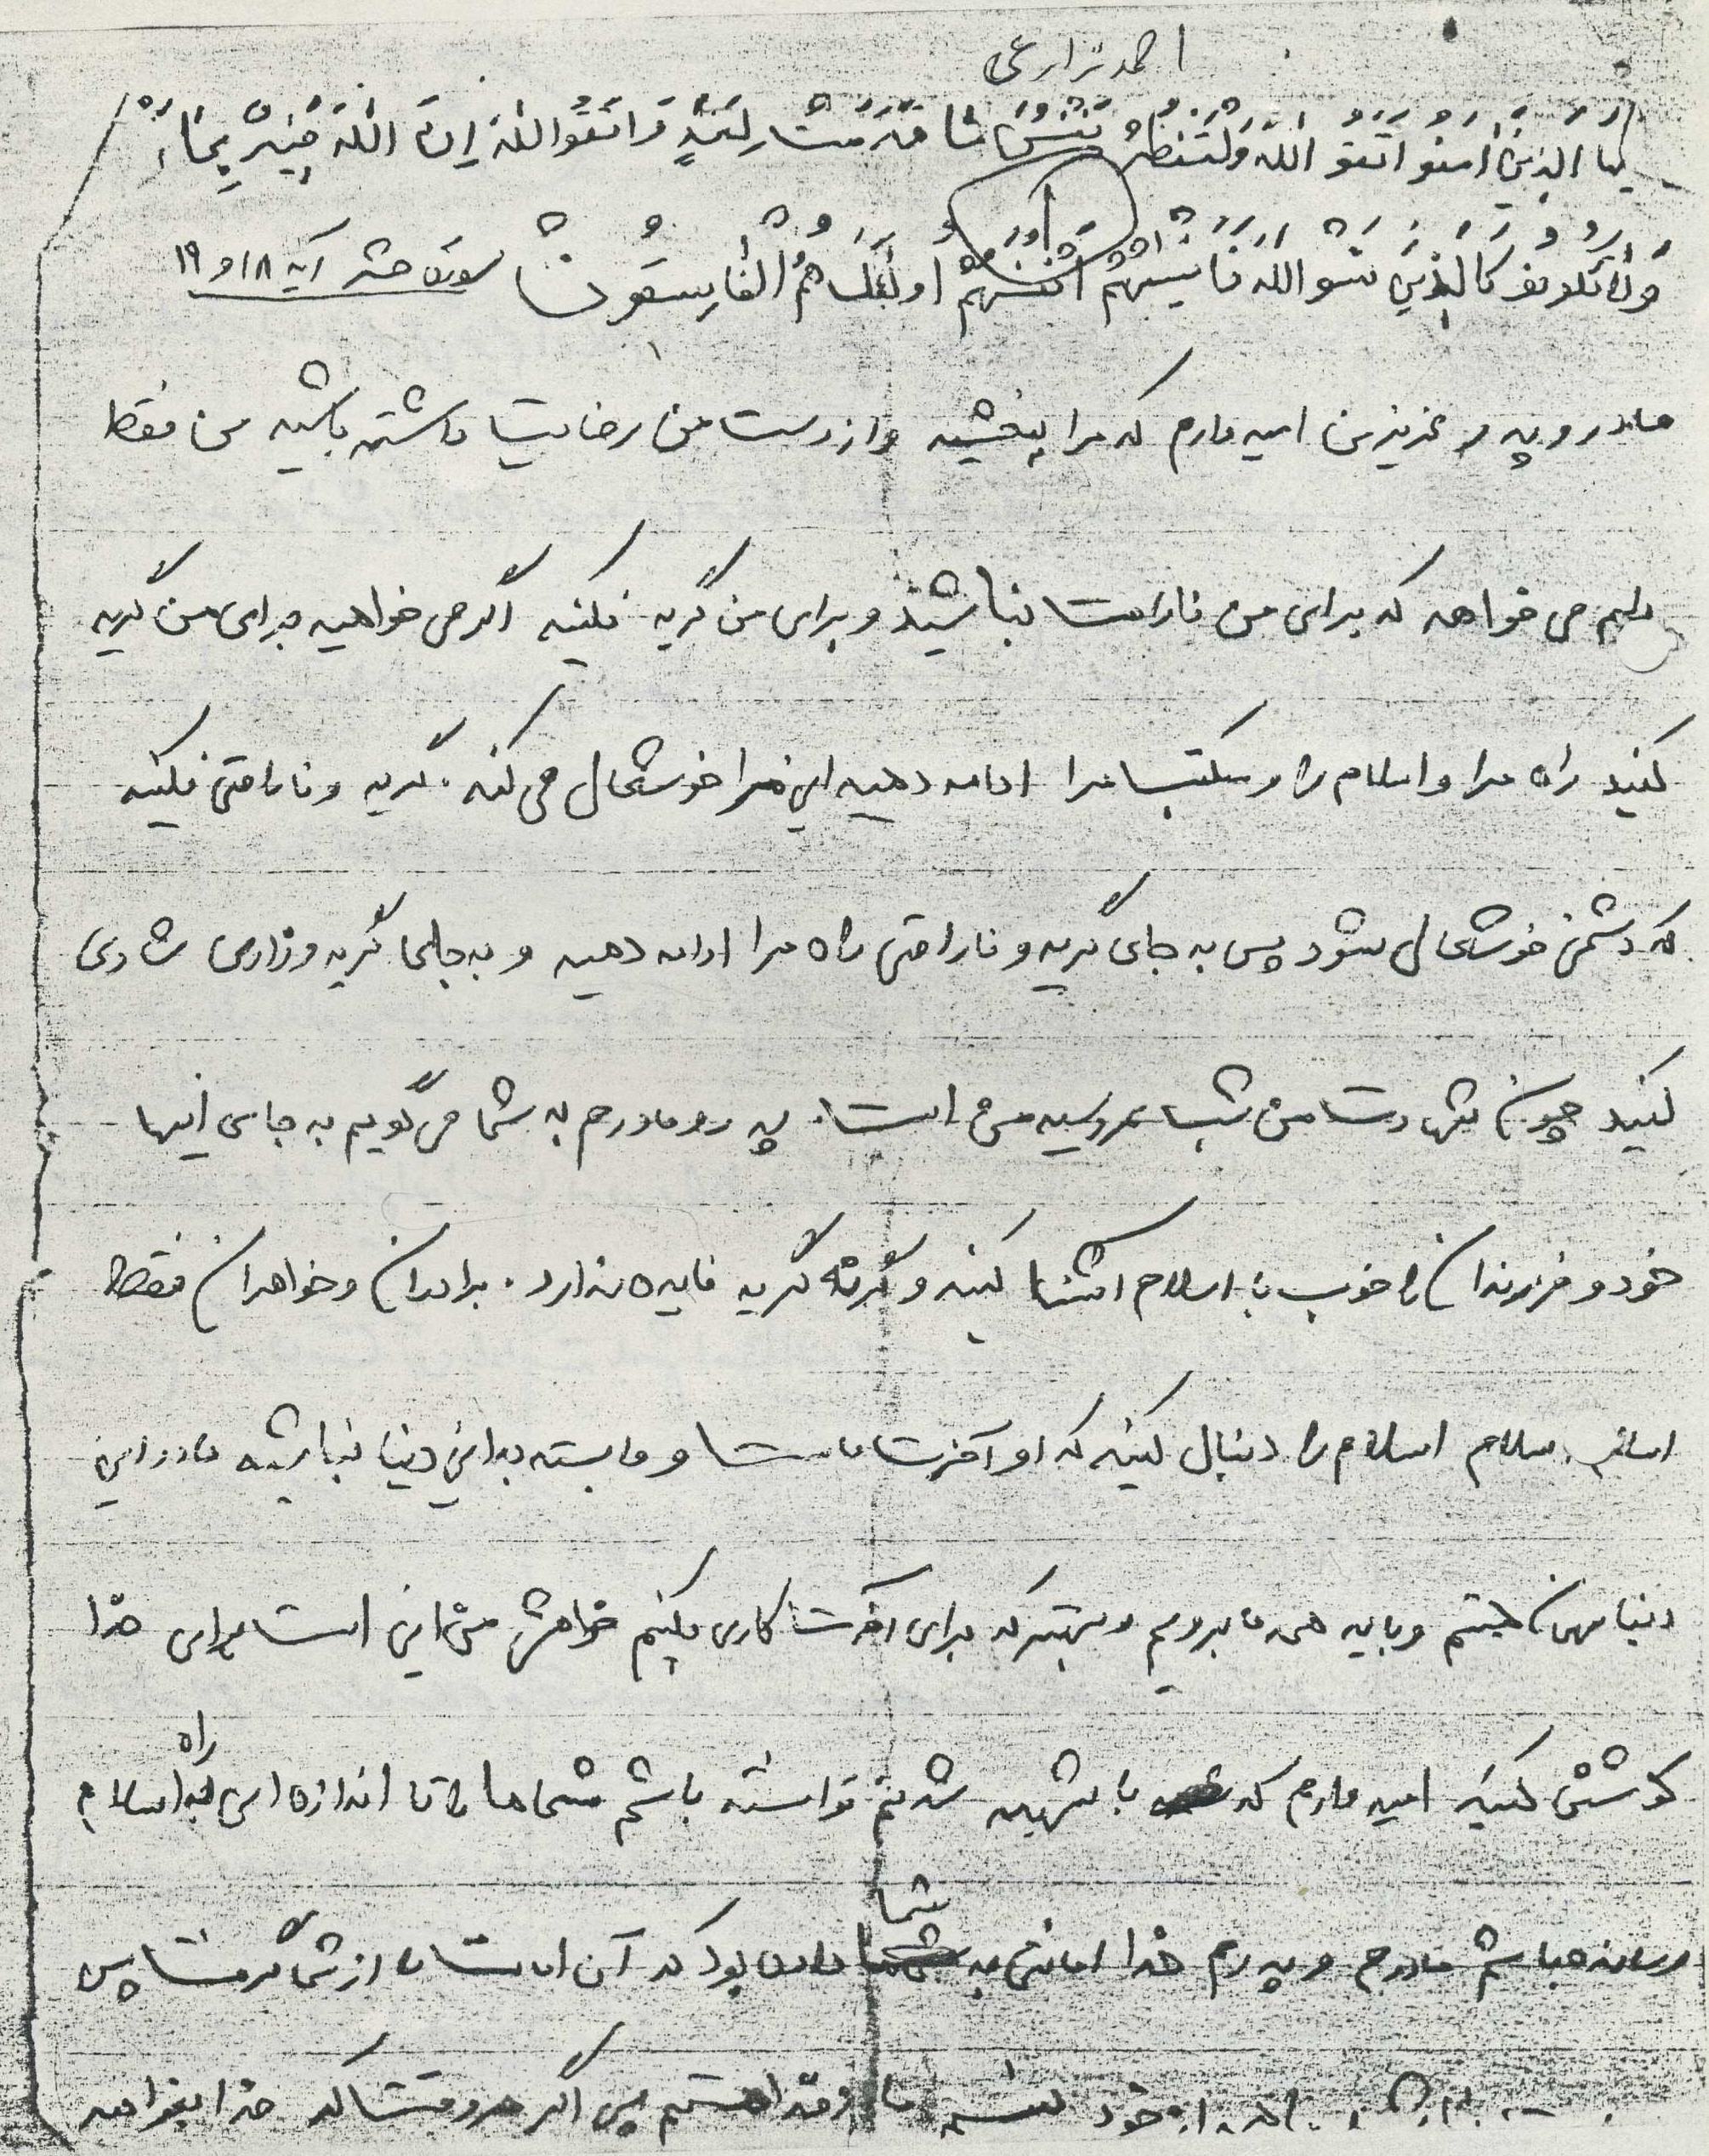 احمد زارعی
یا ایها الذین امنو اتقو الله ولتنظر نفس ما قدمت لغد و اتقوالله ان الله خبیر بما
ولا تکونو کالذین نسو الله فانسیهم انفسهم اولئک هم الفاسقون سوره حشر آیه ۱۸ و ۱۹
مادر و پدر عزیزمن امیدوارم که مرا ببخشید و از دست من رضایت داشته باشید من فقط
دلم می خواهد که برای من ناراحت نباشید و برای من گریه نکنید اگر می خواهید برای من گریه
کنید راه مرا و اسلام را و مکتب مرا ادامه دهید این مرا خوشحال می کند. گریه و ناراحتی نکنید
که دشمن خوشحال شود پس به جای گریه و ناراحتی راه مرا ادامه دهید و به جای گریه و زاری شادی
کنید چون شهادت من شب عروسیه من است. پدر و مادرم به شما می گویم به جای اینها
خود و فرزندان را خوب با اسلام آشنا کنید و گرنه گریه فایده ندارد. برادران و خواهران فقط
اسلام اسلام را دنبال کنید که او آخرت ماست و وابسته به این دنیا نباشید مادر این
دنیا مهمان هستیم و باید همه ما برویم و بهتر که برای آخرت کاری بکنیم خواهش من این است برای خدا
کوشش کنید امیدوارم که با شهید شدنم توانسته باشم شماها را تا اندازه ای به راه اسلام
رسانده باشم مادرم و پدرم خدا امانتی به شما داده بود که آن امانت را از شما گرفت پس
خود نیستیم ما از خدا هستیم پس اگر هر وقت که خدا بخواهد